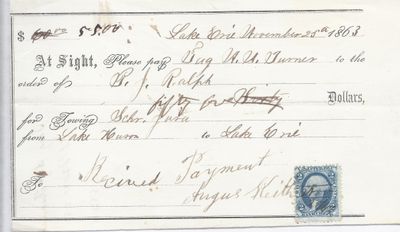 $ 60.00 55.00 Lake Erie November 25th 1863
At Sight, Please pay Tug W. U. Turner to the
order of P. J. Ralph
fifty five Thirty Dollars,
for Towing Schr. Java
from Lake Huron to Lake Erie
To Recieved Payment
Angus Keith